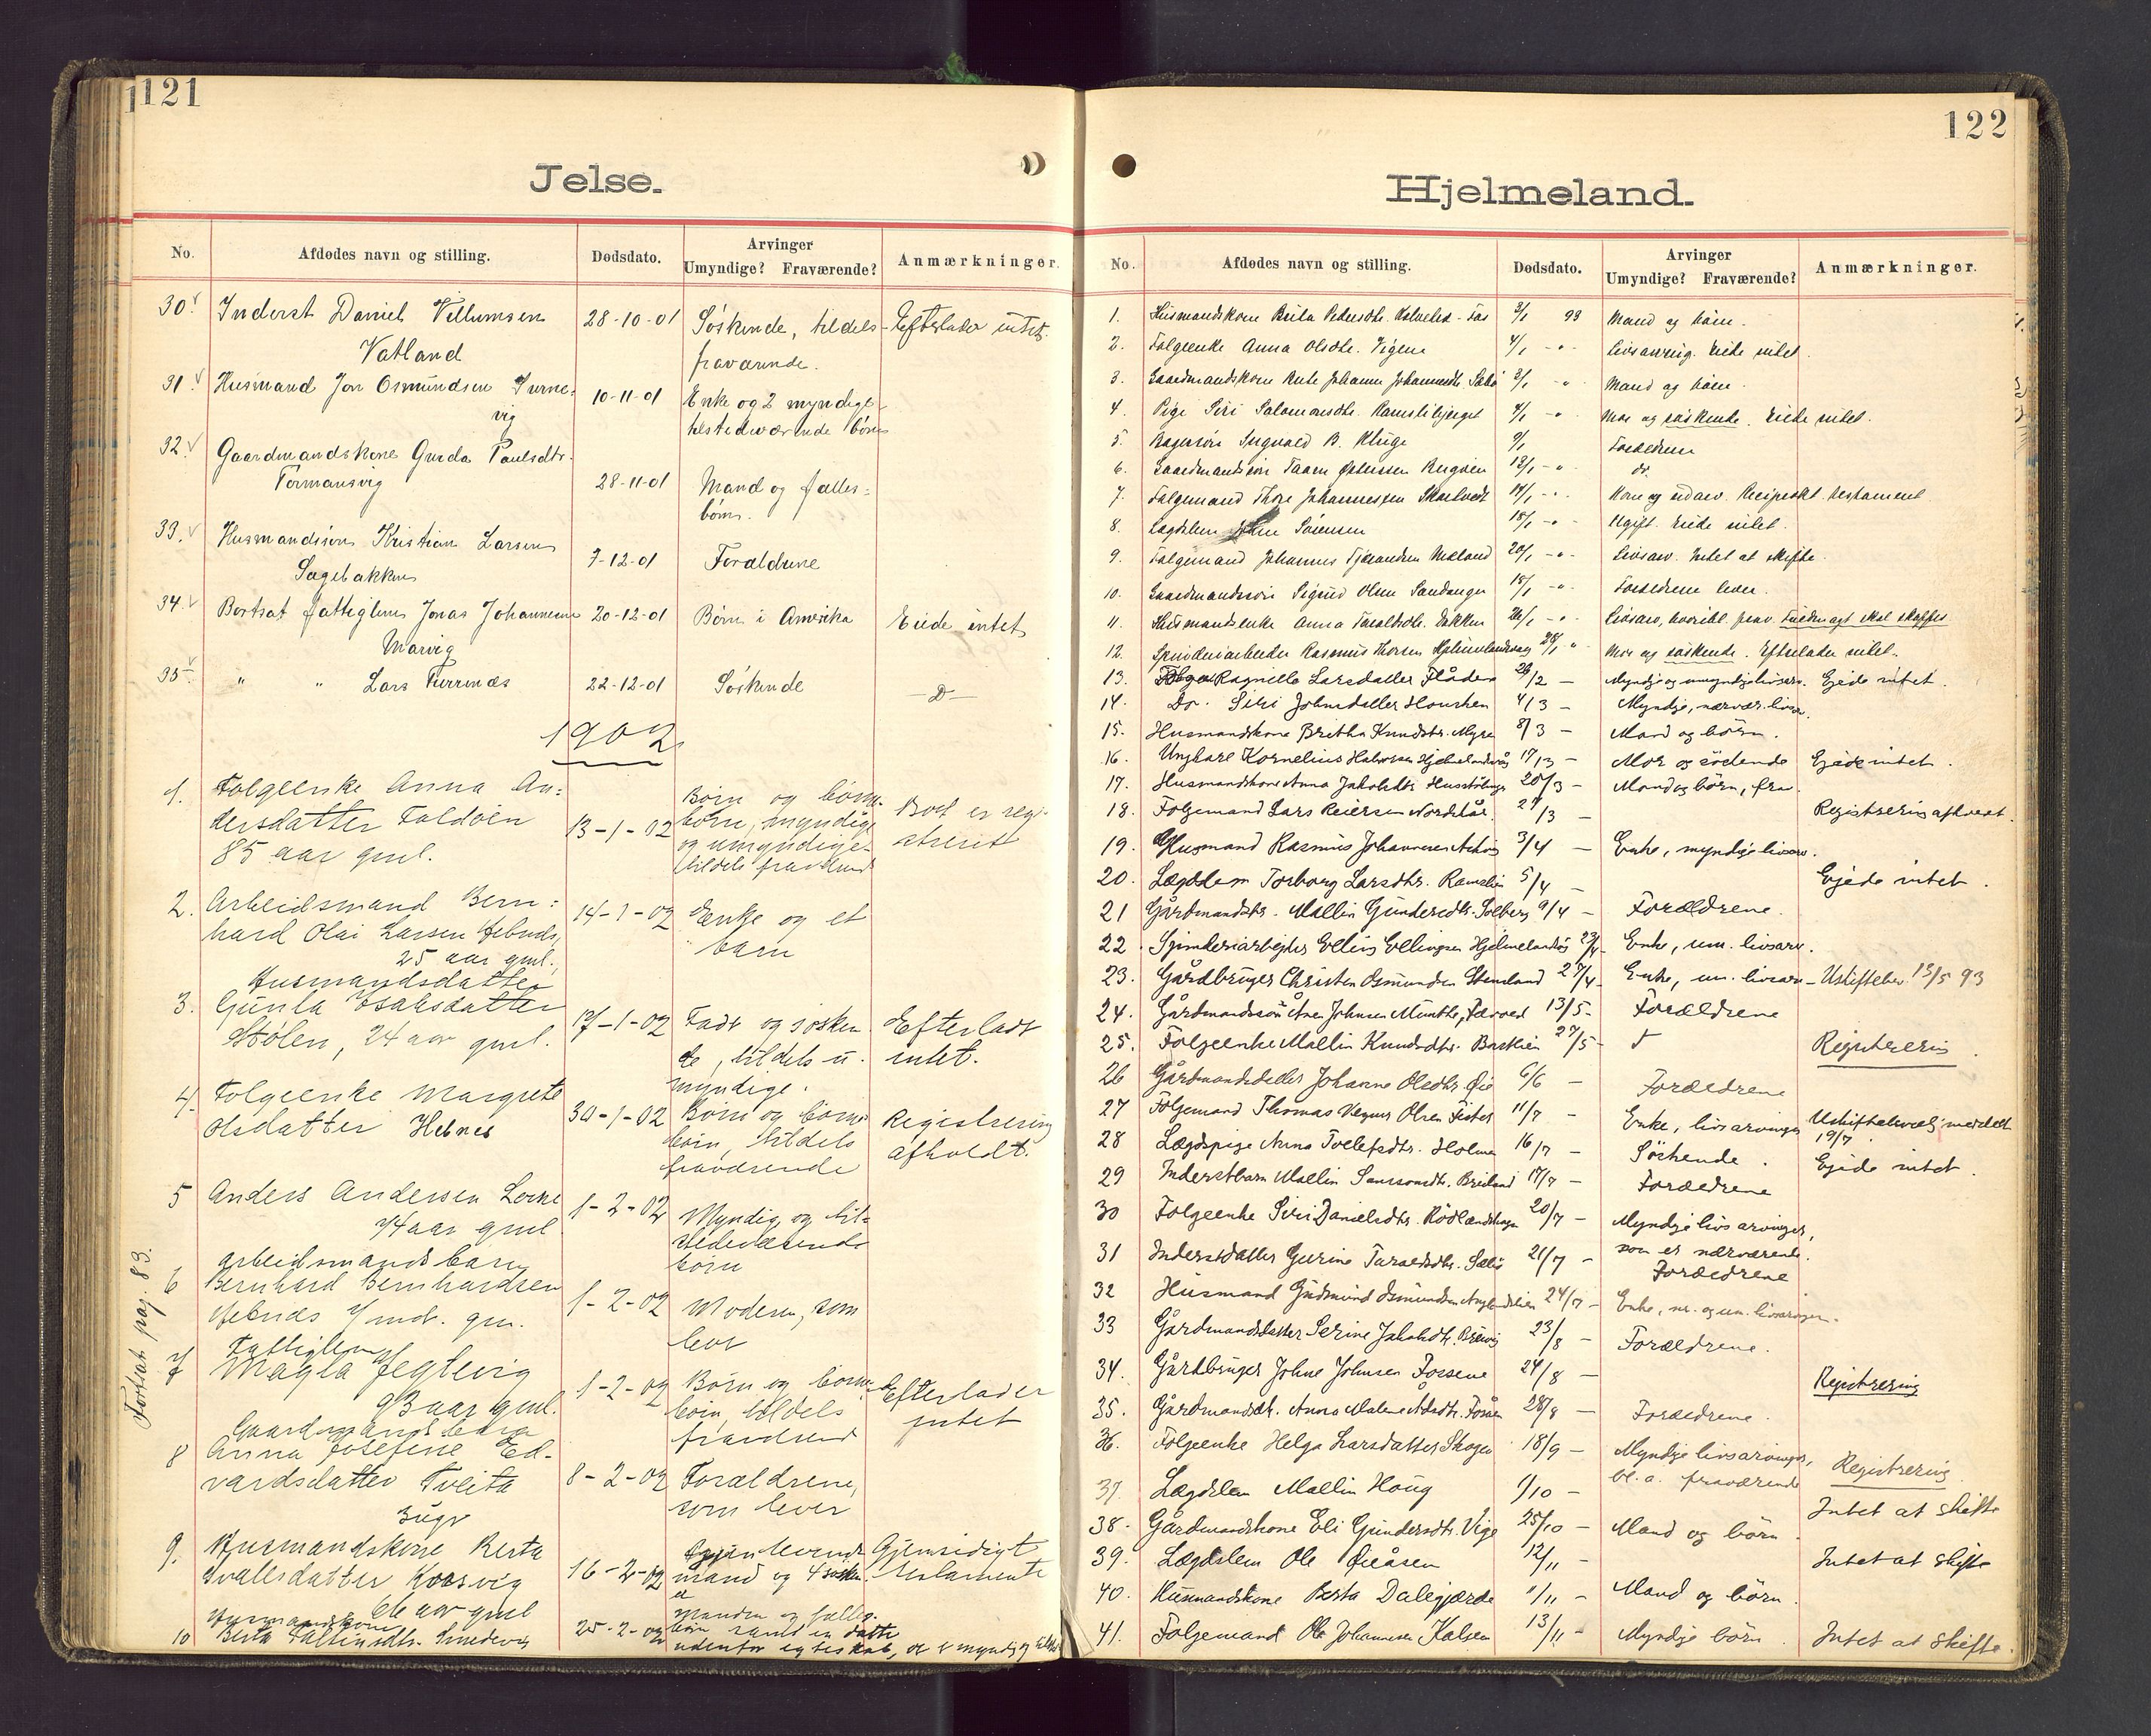 121
Jelse.
No. Afdødes navn og stilling. Dødsdato. Arvinger Umyndige? Fraværende? Anmærkninger.
30. Inderst Daniel Villumsen 28-10-01 Søskende, tildels Efterlader intet.
Vatland fraværende.
31. Husmand Jon Osmundsen
vig 10-11-01 Enke og 2 myndige
tilstedeværende børn
32. Gaardmandskone Gurda Paulsdtr.
Tormansvig 28-11-01 Mand og fælles-
børn.
33. Husmandssøn Kristian Larsen
Sagebakken 7-12-01 Forældrene
34. Bortsat fattiglem Jonas Johannesen 20-12-01 Børn i Amerika Eiede intet
Marvig
35. " " Lars 22-12-01 Søskende — D —
1902
1. Følgeenke Anna An-
dersdatter Foldøen 13-1-02 Børn og børne-
børn, myndige
og umyndige Boet er regi-
streret
85 aar gml. tildels fraværende
2. Arbeidsmand Bern-
hard Olai Larsen Hebnes 14-1-02 Enke og et
barn
25 aar gml.
Husmandsdatter
3. Gunla Isaksdatter
Stølen, 24 aar gml. 17-1-02 Fader og søsken
de, tildels u-
myndige. Efterladt
intet.
4. Følgeenke Margrete
Olsdatter Hebnes 30-1-02 Børn og børne-
børn, tildels
fraværende Registrering
afholdt.
5 Anders Andersen
74 aar gml 1-2-02 Myndig og til-
stedeværende
børn
arbeidsmands barn
6 Bernhard Bernhardsen
Hebnes 7 md. gm. 1-2-02 Moderen, som
lever
Fattiglem
7 Magla Jegtevig
93 aar gml. 1-2-02 Børn og børne
børn, tildels
fraværend Efterlader
intet
Gaardmands barn
8 Anna Josefine Ed-
vardsdatter Tveita 8-2-02 Forældrene,
som lever
9. Husmandskone Berta
16-2-02 mand og 4 søsken Gjensidigt
testamente
aar gml
Husmandskone
10 Berta 25-2-02 Manden og fælles-
børn samt en datter
udenfor egteskab, de er myndig
Fortsat pag. 83.
122
Hjelmeland.
No. Afdødes navn og stilling. Dødsdato. Arvinger Umyndige? Fraværende? Anmærkninger.
1. Husmandskone Brita Pedersdtr. 3/1 99 Mand og børn.
2. Følgeenke Anna Olsdtr. Vigene 4/1 -"- Livsarving. Eiede intet.
3. Gaardmandskone Johannesdtr. 3/1 -"- Mand og børn.
4. Pige Siri Salomonsdtr. 4/1 -"- Mor og søskende. Eiede intet.
5. Bagersøn Sigvald B. Kluge 9/1 Forældrene
6. Gaardmandssøn 12/1 -"- do.
7. Følgemand Johannessen 14/1 -"- Kone og Reciprokt. testament
8. Lægdslem Sørensen 18/1 -"- Ugift. Eiede intet.
9. Følgemand Johannes Mæland 20/1 -"- Livsarv. Intet at skifte.
10. Gaardmandssøn Sigurd Olsen Sandanger 18/1 -"- Forældrene lever.
11. Husmandsenke Anna Bakken 26/1 -"- Livsarv,
12. Spinderiarbeider Rasmus Thorsen Hjelmelandsvåg Mor og søskende. Efterlader intet.
13. Ragnille Larsdatter 26/2 — Myndige og umyndige livsarv. Ejede intet.
14. Do. Siri Johnsdatter 4/3 — Myndige, nærvær. livsarv.
15. Husmandskone Britha Knudsdtr. Myre 8/3 — Mand og børn.
16. Ungkarl Kornelius Halvorsen Hjelmelandsvåg 17/3 — Mor og Ejede intet.
17. Husmandskone Anna Jakobsdtr. 20/3 — Mand og børn, fra.
18. Følgemand Lars Reiersen 27/3 — Registrering afholdt.
19. Husmand Rasmus Johannesen 3/4 — Enke, myndige livsarv.
20. Lægdslem Torborg Larsdtr. 5/4 — Ejede intet.
21 Gårdmandsdtr. Mallin Gundersdtr. Solberg 9/4 — Forældrene.
22. Spinderiarbejder Elling Ellingsen Hjelmelandsvåg 23/4 - Enke, um. livsarv.
23. Gårdbruger Christen Osmundsen Steinsland 27/4 - Enke, um. livsarv - Uskiftebev. 15/5 93
24. Gårdmandssøn Johnsen 13/5 - Forældrene
25. Følgeenke Mallin Knudsdtr. 27/5 - Registrering.
26 Gårdmandsdatter Johanne Olsdtr. Øie 6/6 — Forældrene
27 Følgemand Thomas Olsen Fister 11/7 - Enke, livsarvinger Uskiftebev. meddelt 19/7
28 Lægdspige Anna Tollefsdtr. Holmen 16/7 — Søskende. Ejede intet.
29 Inderstbarn Mallin Samsonsdtr. 17/7 — Forældrene
30 Følgeenke Siri Danielsdtr. 20/7 — Myndige livsarvinger,
som er nærværende.
31 Inderstdatter Gurine Taraldsdtr. 21/7 — Forældrene
32 Husmand Gudmund Osmundsen 24/7 - Enke, m. og um. livsarvinger.
33 Gårdmandsdatter Serine Jakobsdtr. 23/8 — Forældrene.
34. Gårdbruger Johne Johnsen Fossene 24/8 — Registrering
35. Gårdmandsdtr. Anna Malene 28/8 — Forældrene.
36. Følgeenke Helga Larsdatter Skogen 18/9 — Myndige livsarvinger,
bl. a. fraværende Registrering.
37. Lægdslem Mallin Houg 1/10 — Intet at skifte
38. Gårdmandskone Eli Gundersdtr. Vige 25/10 — Mand og børn.
39. Lægdslem Ole Øieåsen 12/11 — Intet at skifte
40. Husmandskone Berta Dalegjærde 11/11 — Mand og børn.
41. Følgemand Ole Johannesen Kalsen 13/11 — Myndige børn. Intet at skifte.